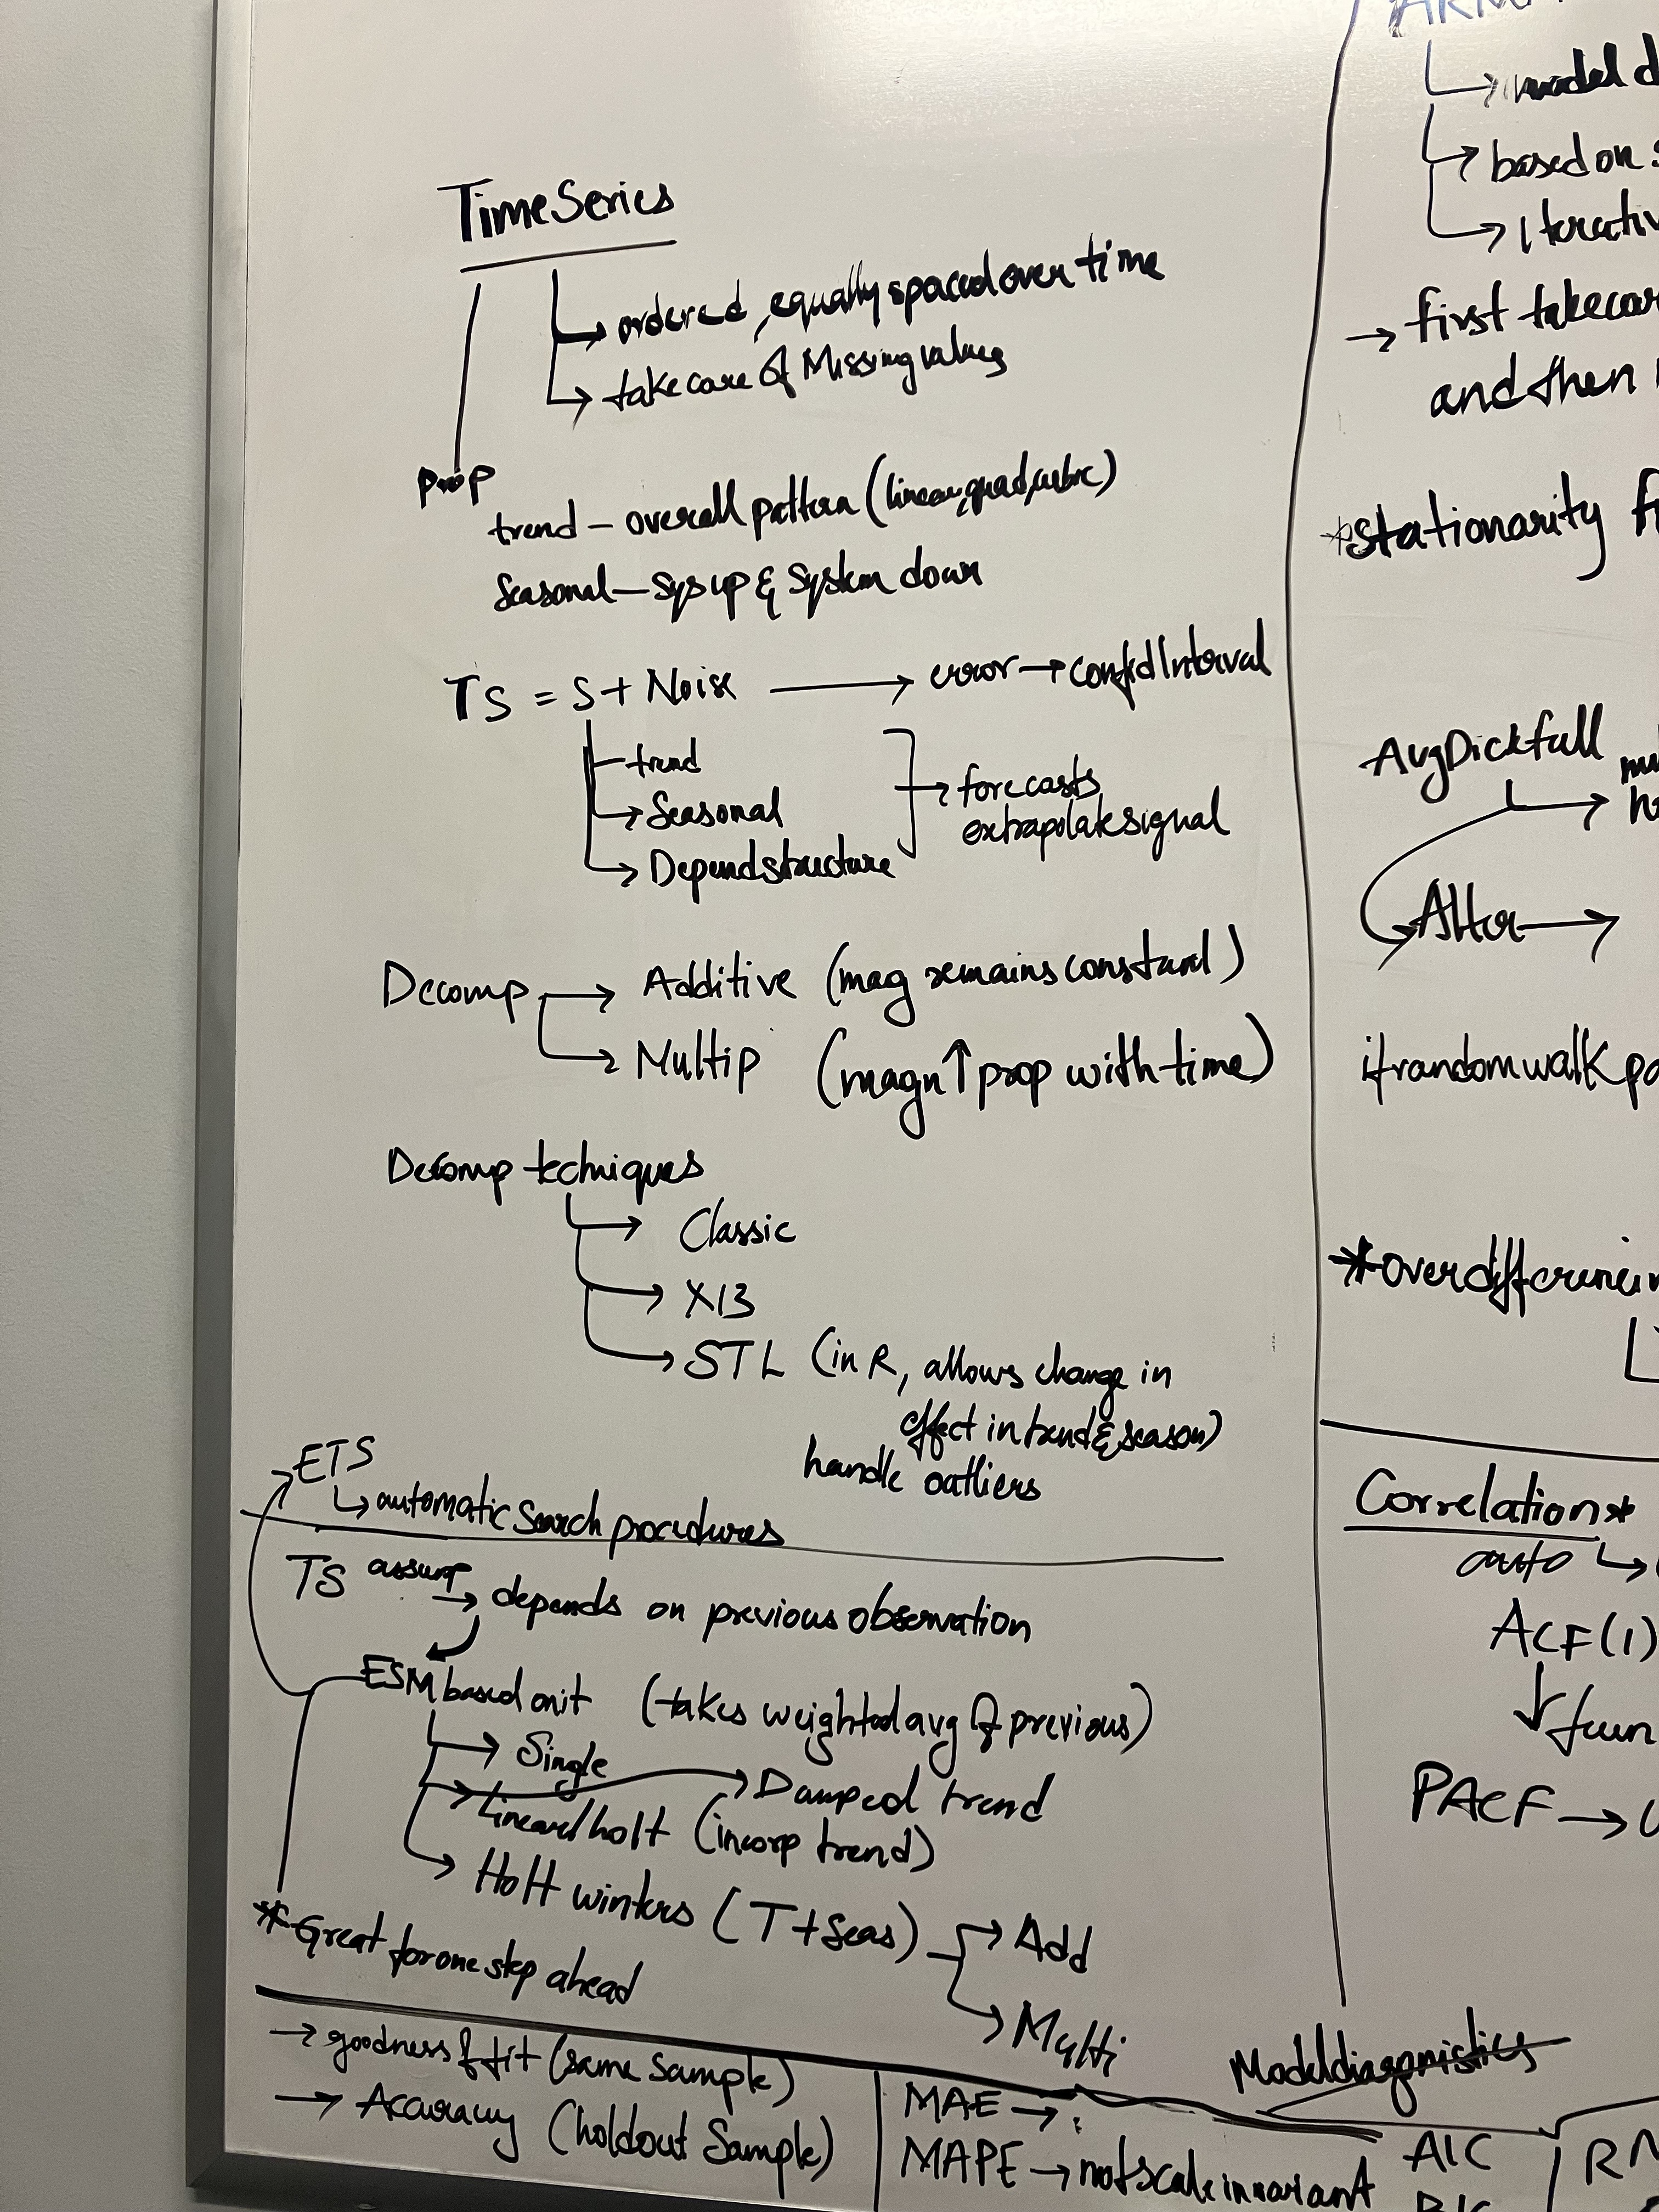 Time Series
ordered, equally spaced over time
take care of Missing values
Prop
trend – overall pattern (linear, quad, cubic)
Seasonal – Sys up & System down
TS = S + Noise → error → confid Interval
trend
Seasonal
Depend structure
forecasts
extrapolate signal
Decomp → Additive (mag remains constant)
→ Multip (magn ↑ prop with time)
Decomp techniques
→ Classic
→ X13
→ STL (in R, allows change in
effect in trend & season)
handle outliers
ETS
↳ automatic Search procedures
TS assump → depends on previous observation
ESM based on it (takes weighted avg of previous)
→ Single
→ Linear/holt (incorp trend)
→ Damped trend
→ Holt winters (T + Seas) → Add
→ Multi
* Great for one step ahead
→ goodness of fit (same sample)
→ Accuracy (holdout Sample)
MAE → :
MAPE → not scale invariant
Model diagonistics
AIC
BIC
ARM
→ model d
→ based on s
→ Iterativ
→ first take car
and then
* Stationarity f
Aug Dick full
Alter →
if random walk pa
* over differencin
Correlation *
auto ↳
ACF (1)
↓ fun
PACF →